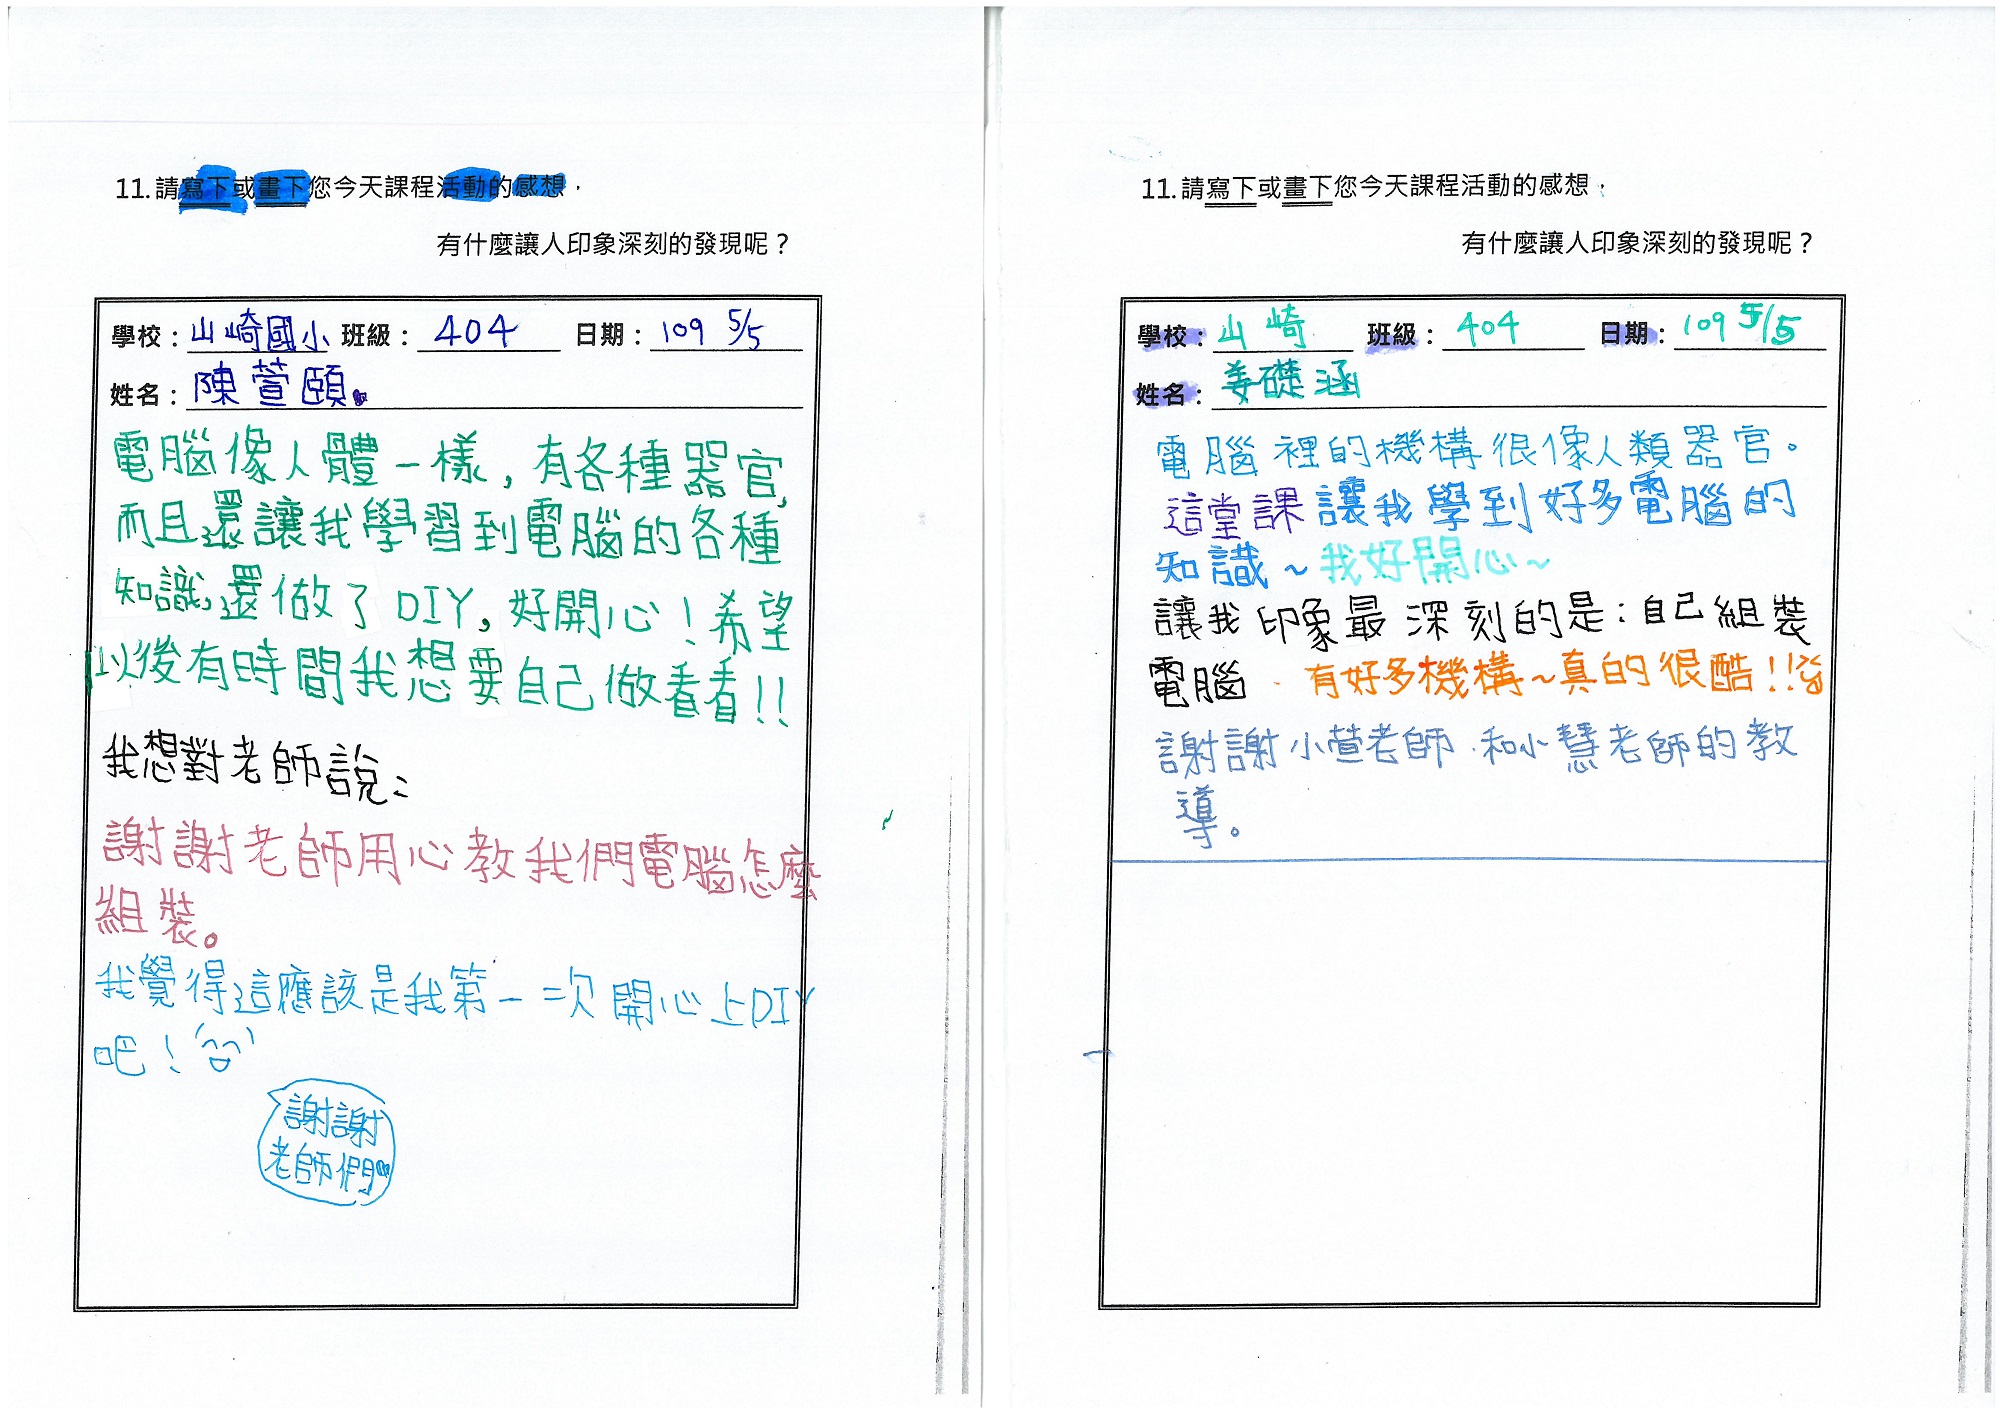 11.請寫下或畫下您今天課程活動的感想，
有什麼讓人印象深刻的發現呢？
學校：山崎國小 班級：404 日期：109 5/5
姓名：陳萱頤。
電腦像人體一樣，有各種器官，
而且還讓我學習到電腦的各種
知識，還做了DIY，好開心！希望
以後有時間我想要自己做看看!!
我想對老師說：
謝謝老師用心教我們電腦怎麼
組裝。
我覺得這應該是我第一二次開心上DIY
吧！
謝謝
老師們
11.請寫下或畫下您今天課程活動的感想，
有什麼讓人印象深刻的發現呢？
學校：山崎 班級：404 日期：109 5/5
姓名：姜礎涵
電腦裡的機構很像人類器官。
這堂課讓我學到好多電腦的
知識~我好開心~
讓我印象最深刻的是：自己組裝
電腦．有好多機構~真的很酷!!
謝謝小萱老師．和小慧老師的教
導。